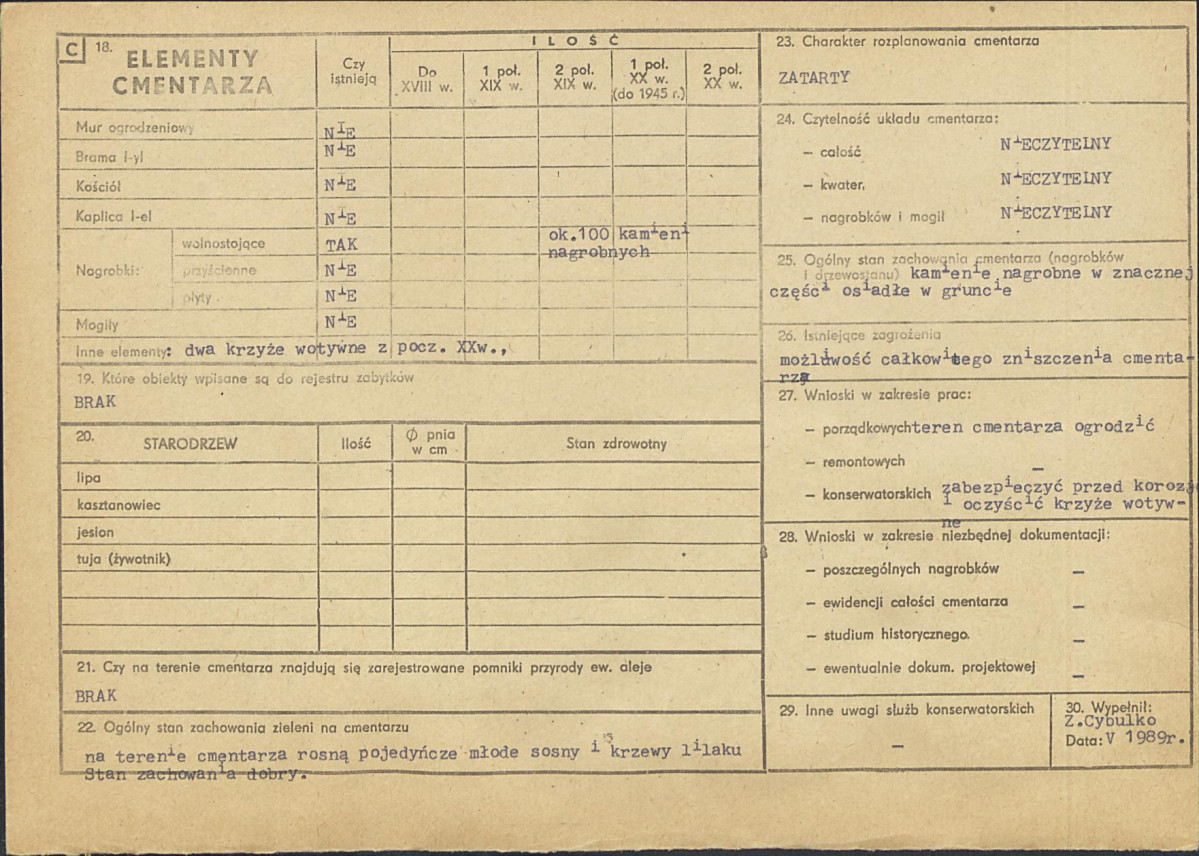 C 18. ELEMENTY CMENTARZA
Czy istnieją
ILOŚĆ
Do XVIII w.
1 poł. XIX w.
2 poł. XIX w.
1 poł. XX w. (do 1945 r.)
2 poł. XX w.
Mur ogrodzeniowy NIE
Brama i-yl NIE
Kościół NIE
Kaplica i-el NIE
Nagrobki:
wolnostojące TAK ok.100 kamieni nagrobnych
przyścienne NIE
płyty . NIE
Mogiły NIE
Inne elementy: dwa krzyże wotywne z pocz. XXw.,
19. Które obiekty wpisane są do rejestru zabytków
BRAK
20. STARODRZEW
Ilość
Ø pnia w cm
Stan zdrowotny
lipa
kasztanowiec
jesion
tuja (żywotnik)
21. Czy na terenie cmentarza znajdują się zarejestrowane pomniki przyrody ew. aleje
BRAK
22. Ogólny stan zachowania zieleni na cmentarzu
na terenie cmentarza rosną pojedyńcze młode sosny i krzewy lilaku
Stan zachowania dobry.
23. Charakter rozplanowania cmentarza
ZATARTY
24. Czytelność układu cmentarza:
– całość NIECZYTELNY
– kwater, NIECZYTELNY
– nagrobków i mogił NIECZYTELNY
25. Ogólny stan zachowania cmentarza (nagrobków
i drzewostanu) kamienie nagrobne w znacznej
części osiadłe w gruncie
26. Istniejące zagrożenia
możliwość całkowitego zniszczenia cmenta-
rza
27. Wnioski w zakresie prac:
– porządkowych teren cmentarza ogrodzić
– remontowych –
– konserwatorskich zabezpieczyć przed korozją
i oczyścić krzyże wotyw-
ne
28. Wnioski w zakresie niezbędnej dokumentacji:
– poszczególnych nagrobków –
– ewidencji całości cmentarza –
– studium historycznego. –
– ewentualnie dokum. projektowej –
29. Inne uwagi służb konserwatorskich
–
30. Wypełnił:
Z.Cybulko
Data: V 1989r.